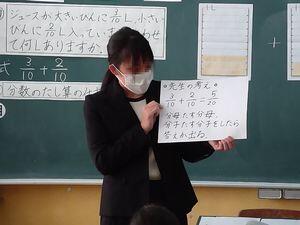 ジュースが大きいびんに3/10L、小さい
びんに2/10L入っています。あわせ
て何Lありますか。
式 3/10+2/10
分数のたし算の仕
○先生の考え○
3/10+2/10=5/20
分母たす分母、
分子たす分子をしたら
答えが出る。